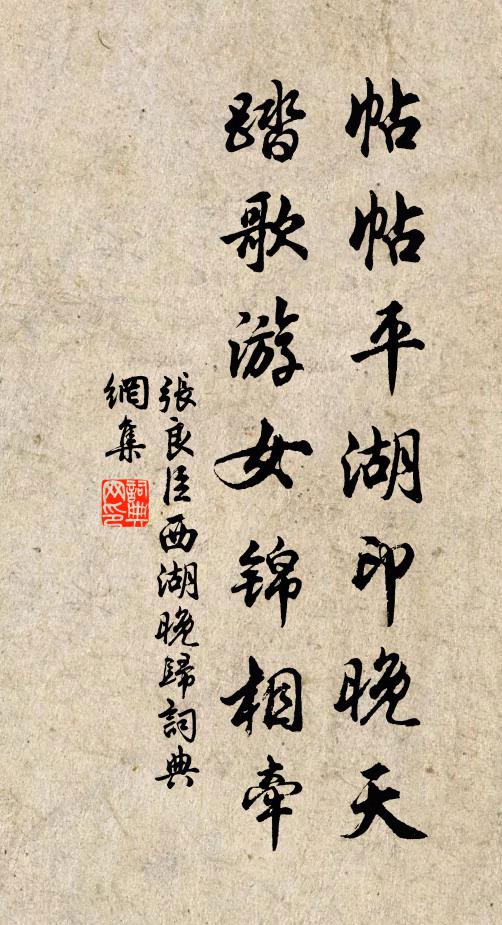 帖帖平湖印晚天
踏歌游女錦相牽
張良臣西湖晚歸詞典
網集
詞典网印